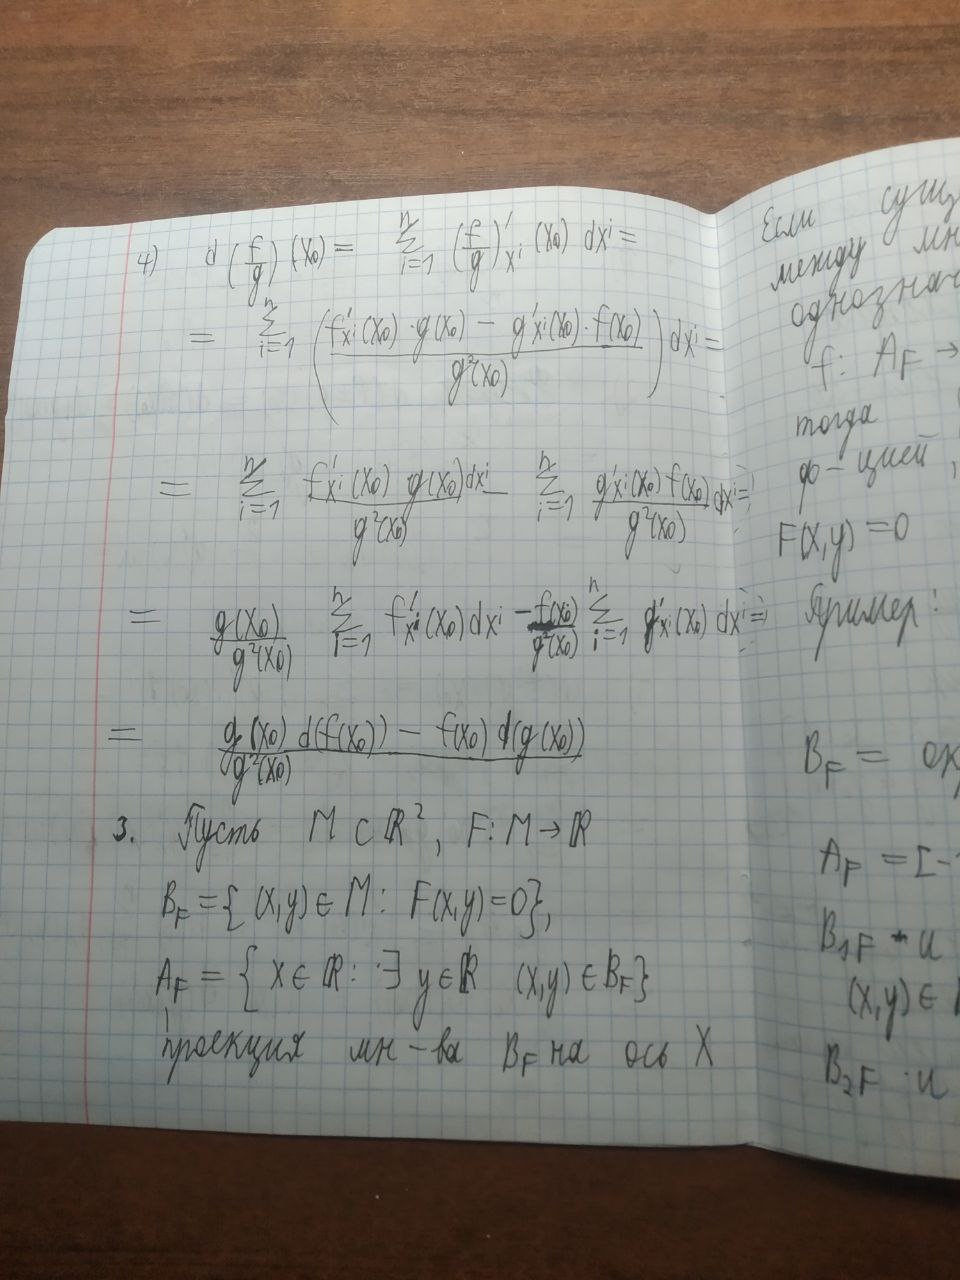 4) d(f/g)(x₀) = ∑ᵢ₌₁ⁿ (f/g)'ₓᵢ (x₀) dxⁱ =
= ∑ᵢ₌₁ⁿ ((f'ₓᵢ(x₀)·g(x₀) − g'ₓᵢ(x₀)·f(x₀)) / g²(x₀)) dxⁱ =
= ∑ᵢ₌₁ⁿ (f'ₓᵢ(x₀) g(x₀) / g²(x₀)) dxⁱ − ∑ᵢ₌₁ⁿ (g'ₓᵢ(x₀) f(x₀) / g²(x₀)) dxⁱ =
= g(x₀)/g²(x₀) ∑ᵢ₌₁ⁿ f'ₓᵢ(x₀) dxⁱ − f(x₀)/g²(x₀) ∑ᵢ₌₁ⁿ g'ₓᵢ(x₀) dxⁱ =
= (g(x₀) d(f(x₀)) − f(x₀) d(g(x₀))) / g²(x₀)
3. Пусть M ⊂ ℝ², F: M → ℝ
B_F = {(x,y) ∈ M: F(x,y)=0},
A_F = {x ∈ ℝ: ∃ y ∈ ℝ (x,y) ∈ B_F}
проекция мн-ва B_F на ось X
Если
между
f: A_F →
тогда
ф-цией,
F(x,y)=0
Пример:
B_F =
A_F = [-
B₁F - и
(x,y) ∈
B₂F - и